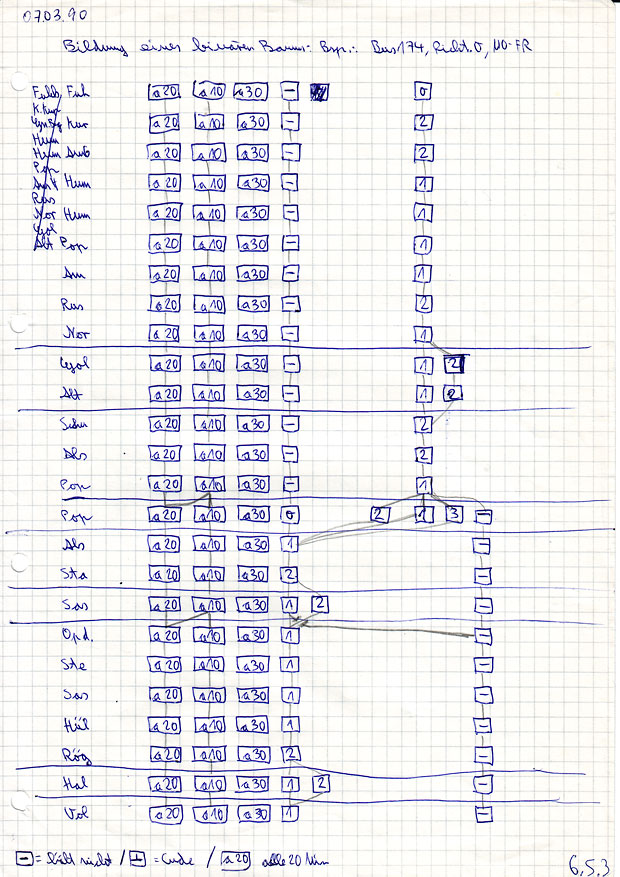 07.03.90
Bildung eines binären Baums: Bsp.: Bus 174, Richt. 0, MO-FR
Fuh a20 a10 a30 - 0
Kur a20 a10 a30 - 2
a20 a10 a30 - 2
Hum a20 a10 a30 - 1
Nor Hum a20 a10 a30 - 1
Alt Pop a20 a10 a30 - 1
Am a20 a10 a30 - 1
Ras a20 a10 a30 - 2
Nor a20 a10 a30 - 1
a20 a10 a30 - 1 2
Alt a20 a10 a30 - 1 2
Schu a20 a10 a30 - 2
Als a20 a10 a30 - 2
Pop a20 a10 a30 - 1
Pop a20 a10 a30 0 2 1 3 -
Als a20 a10 a30 1 -
Sta a20 a10 a30 2 -
Sas a20 a10 a30 1 2 -
Opd. a20 a10 a30 1 -
Ste a20 a10 a30 1 -
Sas a20 a10 a30 1 -
Hül a20 a10 a30 1 -
Rög a20 a10 a30 2 -
Hal a20 a10 a30 1 2 -
Vol a20 a10 a30 1 -
- = hält nicht / + = Ende / a20 alle 20 Min
6.5.3